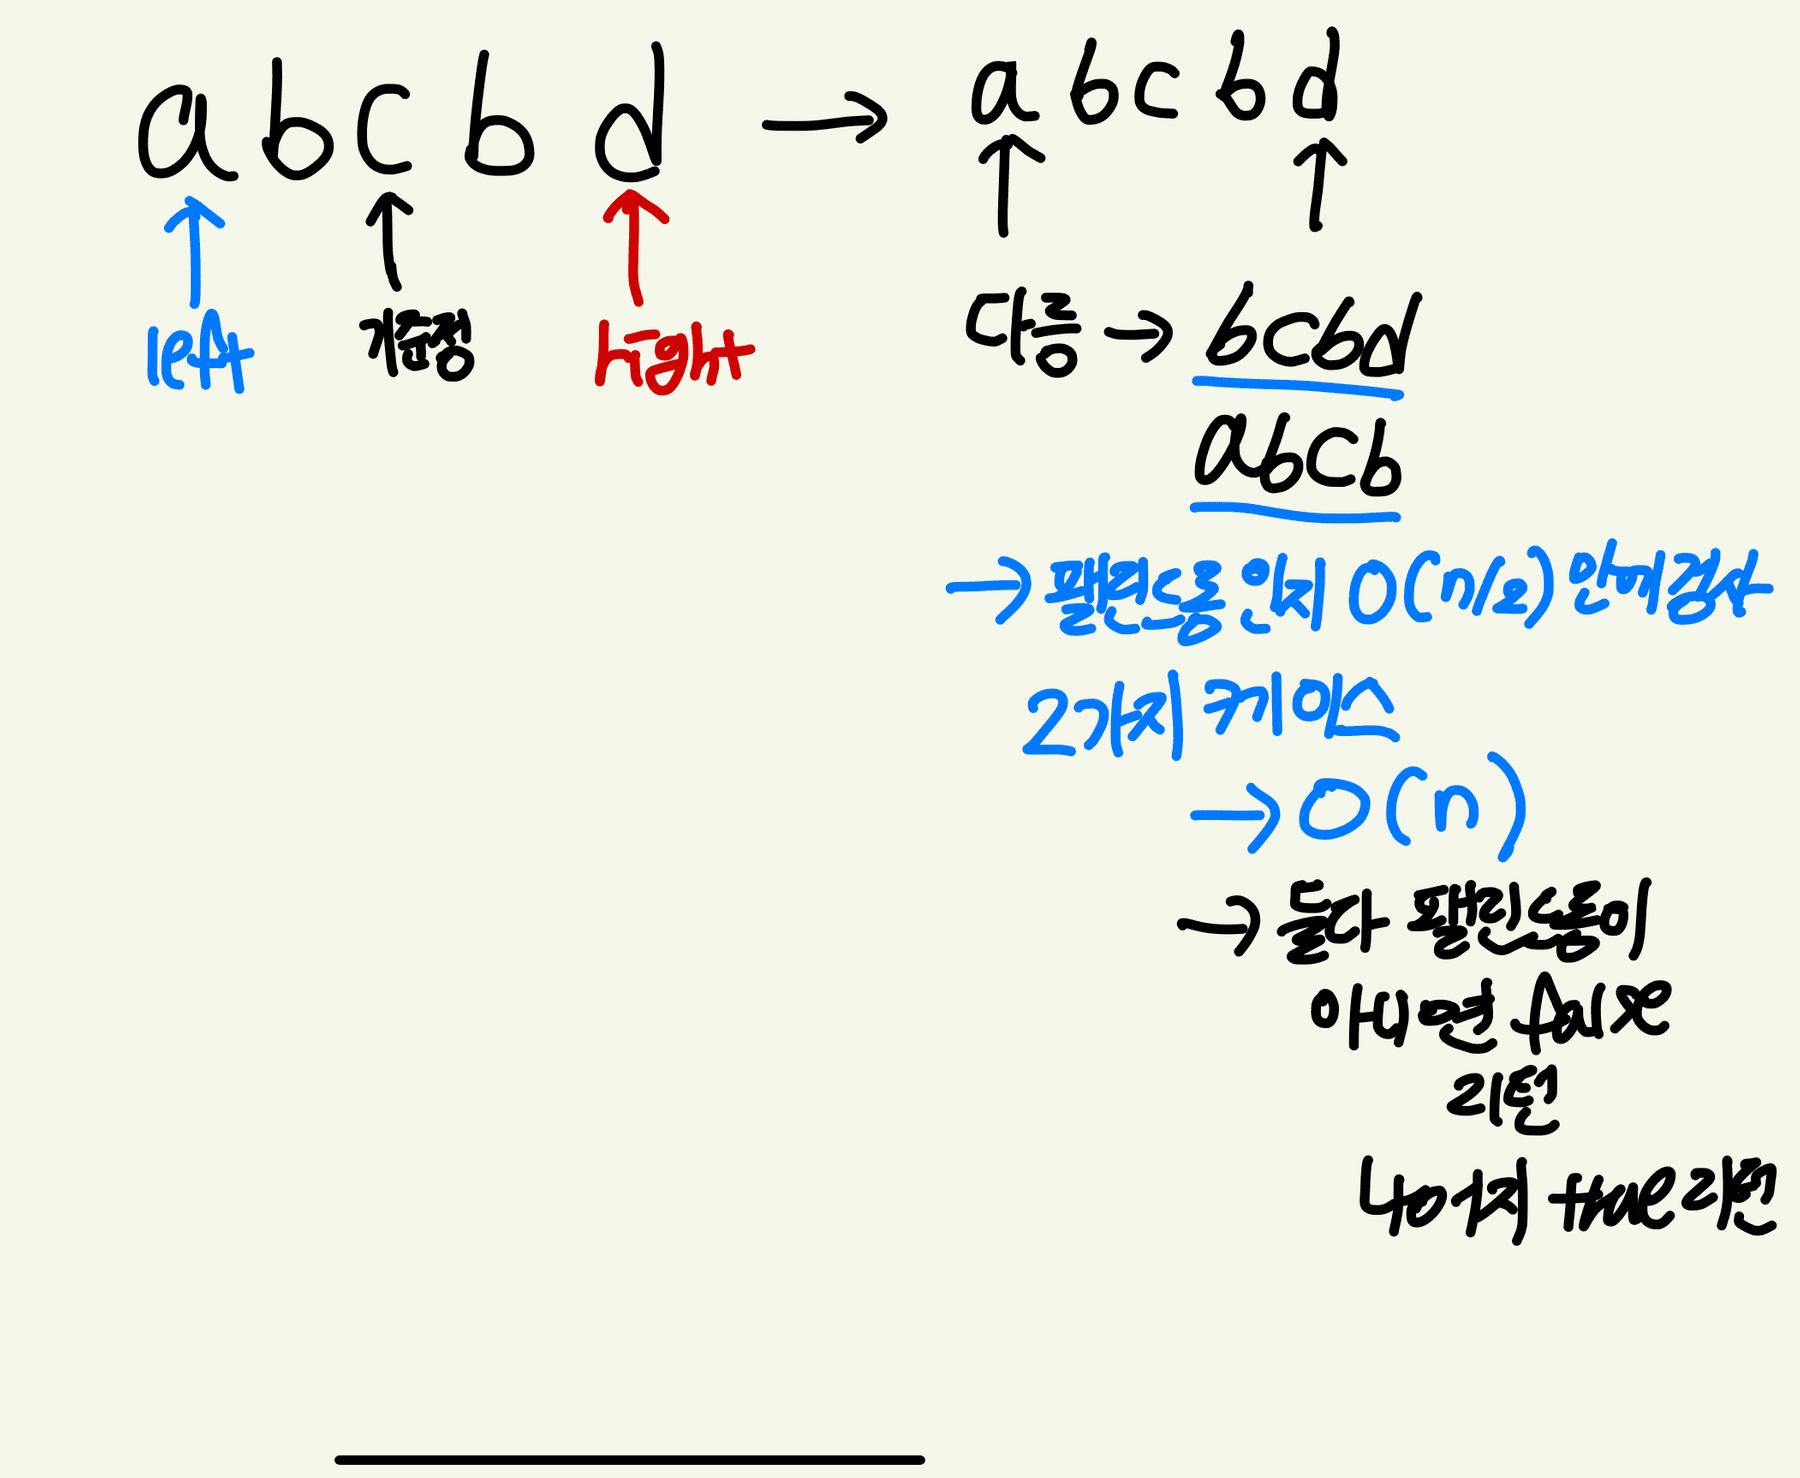 a b c b d → a b c b d
left 기준점 right
다름 → bcbd
abcb
→ 팰린드롬 인지 O(n/2) 안에 검사
2가지 케이스
→ O(n)
→ 둘다 팰린드롬이
아니면 false
리턴
나머지 true 리턴